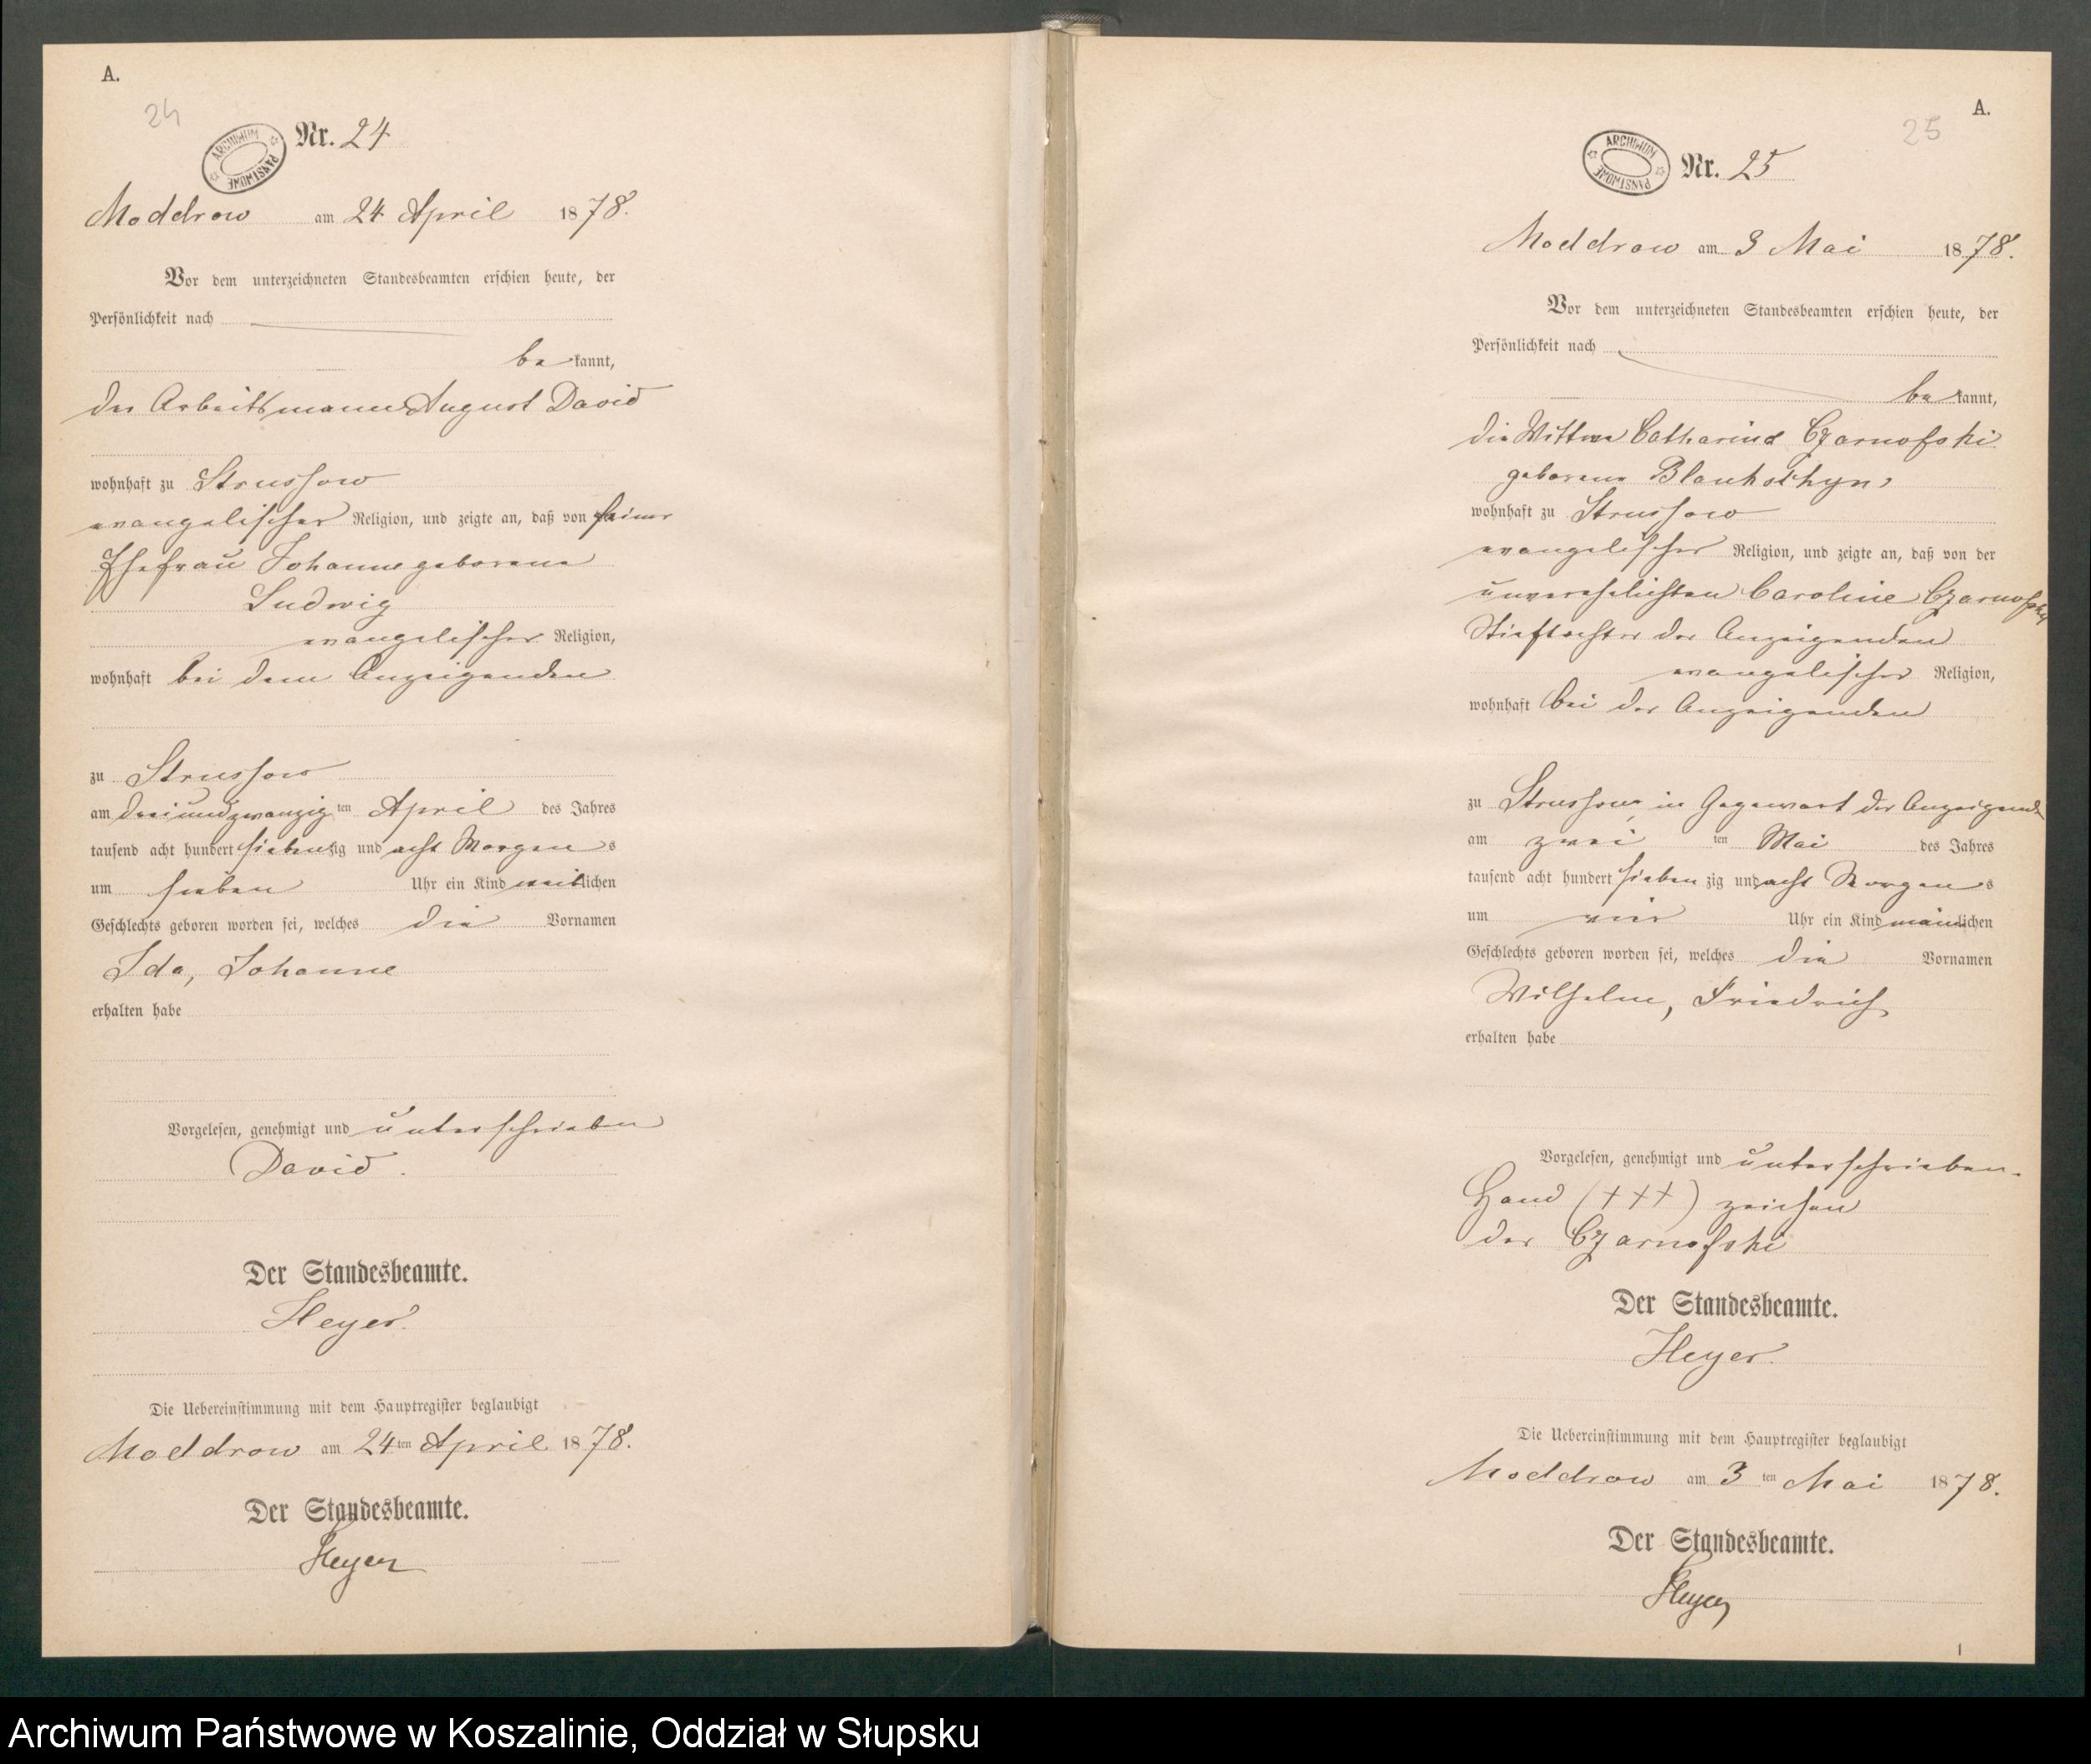 A.
24
ARCHIWUM PAŃSTWOWE
Nr. 24
Moddrow am 24 April 1878.
Vor dem unterzeichneten Standesbeamten erschien heute, der
Persönlichkeit nach
be kannt,
der Arbeitsmann August David
wohnhaft zu Strussow
evangelischer Religion, und zeigte an, daß von seiner
Ehefrau Johanne geborene
Ludwig
evangelischer Religion,
wohnhaft bei dem Anzeigenden
zu Strussow
am dreiundzwanzig ten April des Jahres
tausend acht hundert siebenzig und acht Morgens
um sieben Uhr ein Kind weiblichen
Geschlechts geboren worden sei, welches die Vornamen
Ida, Johanne
erhalten habe
Vorgelesen, genehmigt und unterschrieben
David.
Der Standesbeamte.
Heyer.
Die Uebereinstimmung mit dem Hauptregister beglaubigt
Moddrow am 24ten April 1878.
Der Standesbeamte.
Heyer
A.
25
ARCHIWUM PAŃSTWOWE
Nr. 25
Moddrow am 3 Mai 1878.
Vor dem unterzeichneten Standesbeamten erschien heute, der
Persönlichkeit nach
be kannt,
die Wittwe Catharine Czarnofski
geborene
wohnhaft zu Strussow
evangelischer Religion, und zeigte an, daß von der
unverehelichten Caroline Czarnofski
Stieftochter der Anzeigenden
evangelischer Religion,
wohnhaft bei der Anzeigenden
zu Strussow, in Gegenwart der Anzeigenden
am zwei ten Mai des Jahres
tausend acht hundert siebenzig und acht Morgens
um vier Uhr ein Kind männlichen
Geschlechts geboren worden sei, welches die Vornamen
Wilhelm, Friedrich
erhalten habe
Vorgelesen, genehmigt und unterschrieben.
Hand (+++) zeichen
der Czarnofski
Der Standesbeamte.
Heyer.
Die Uebereinstimmung mit dem Hauptregister beglaubigt
Moddrow am 3 ten Mai 1878.
Der Standesbeamte.
Heyer
1
Archiwum Państwowe w Koszalinie, Oddział w Słupsku